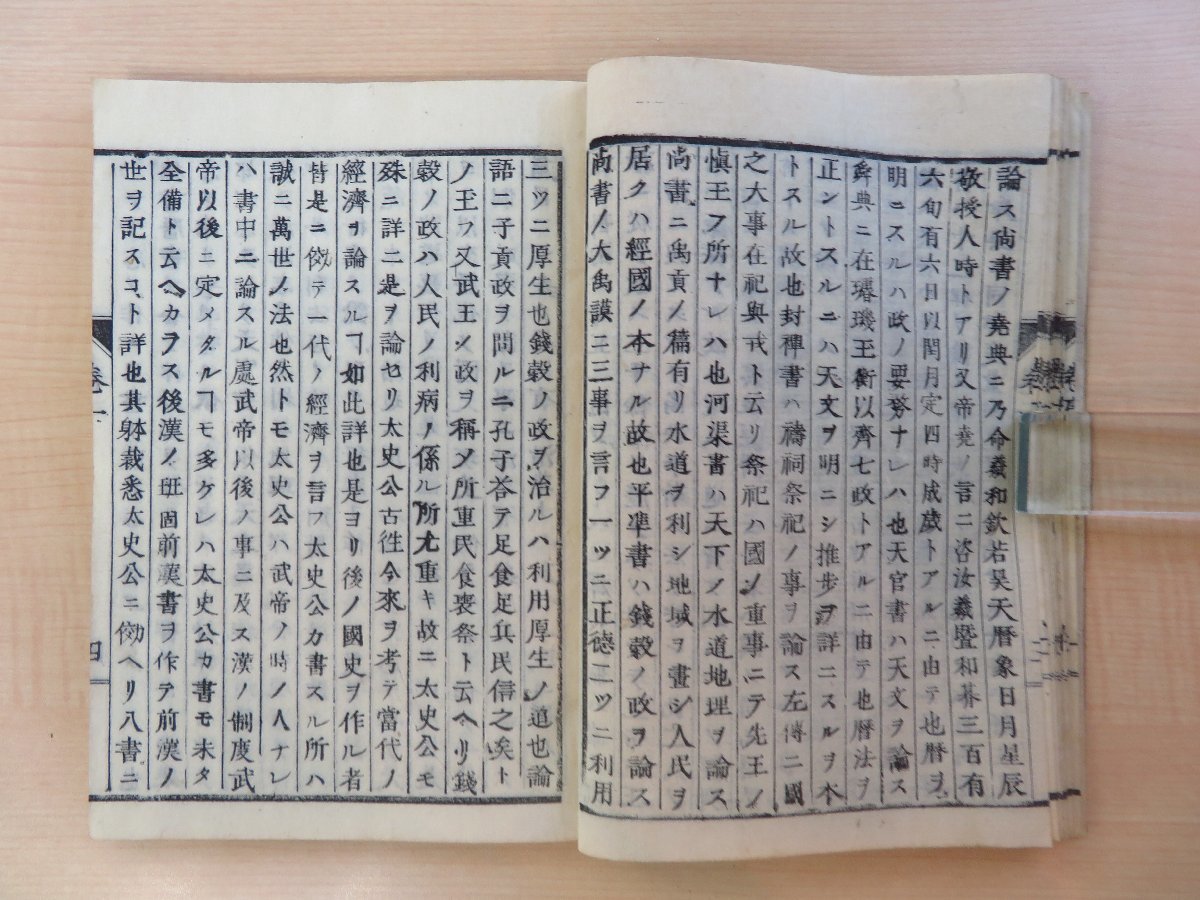 論ス尚書ノ堯典ニ乃命羲和欽若昊天曆象日月星辰
敬授人時トアリ又帝堯ノ言ニ咨汝羲曁和朞三百有
六旬有六日以閏月定四時成歲トアルニ由テ也曆ヲ
明ニスルハ政ノ要務ナレハ也天官書ハ天文ヲ論ス
舜典ニ在璿璣玉衡以齊七政トアルニ由テ也曆法ヲ
正ントスルニハ天文ヲ明ニシ推步ヲ詳ニスルヲ本
トスル故也封禪書ハ禱祠祭祀ノ事ヲ論ス左傳ニ國
之大事在祀與戎ト云リ祭祀ハ國ノ重事ニテ先王ノ
愼玉フ所ナレハ也河渠書ハ天下ノ水道地理ヲ論ス
尚書ニ禹貢ノ篇有リ水道ヲ利シ地域ヲ畫シ人民ヲ
居クハ經國ノ本ナル故也平準書ハ錢穀ノ政ヲ論ス
尚書ノ大禹謨ニ三事ヲ言フ一ツニ正德二ツニ利用
三ツニ厚生也錢穀ノ政ヲ治ルハ利用厚生ノ道也論
語ニ子貢政ヲ問ルニ孔子荅テ足食足兵民信之矣ト
ノ玉フ又武王ノ政ヲ稱ソ所重民食喪祭ト云ヘリ錢
穀ノ政ハ人民ノ利病ノ係ル所尤重キ故ニ太史公モ
殊ニ詳ニ是ヲ論セリ太史公古徃今來ヲ考テ當代ノ
經濟ヲ論スルヿ如此詳也是ヨリ後ノ國史ヲ作ル者
皆是ニ傚テ一代ノ經濟ヲ言フ太史公カ書スル所ハ
誠ニ萬世ノ法也然トモ太史公ハ武帝ノ時ノ人ナレ
ハ書中ニ論スル處武帝以後ノ事ニ及ス漢ノ制度武
帝以後ニ定メタルヿモ多ケレハ太史公カ書モ未タ
全備ト云ヘカラス後漢ノ班固前漢書ヲ作テ前漢ノ
世ヲ記スコト詳也其躰裁悉太史公ニ傚ヘリ八書ニ
卷一
四